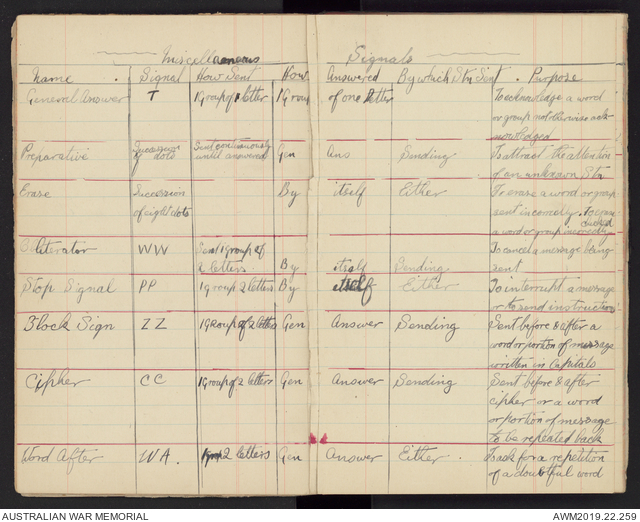 Miscellaneous Signals
Name . Signal How Sent How Answered By which Stn Sent . Purpose
General Answer T 1 Group of 1 letter 1 Group of one letter To acknowledge a word
or group not otherwise ack-
nowledged
Preparative Succession Sent continuously Gen Ans Sending To attract the attention
of dots until answered of an unknown Stn
Erase Succession By itself Either To erase a word or group
of eight dots sent incorrectly.
a word or group incorrectly
Obliterator WW Sent 1 Group of To cancel a message being
2 letters By itself Sending sent
Stop Signal PP 1 group 2 letters By itself Either To interrupt a message
or to send instruction
Block Sign ZZ 1 Group of 2 letters Gen Answer Sending Sent before & after a
word or portion of message
written in Capitals
Cipher CC 1 Group of 2 letters Gen Answer Sending Sent before & after
cipher or a word
or portion of message
to be repeated back
Word After WA. 2 letters Gen Answer Either . To ask for a repetition
of a doubtful word
AUSTRALIAN WAR MEMORIAL AWM2019.22.259